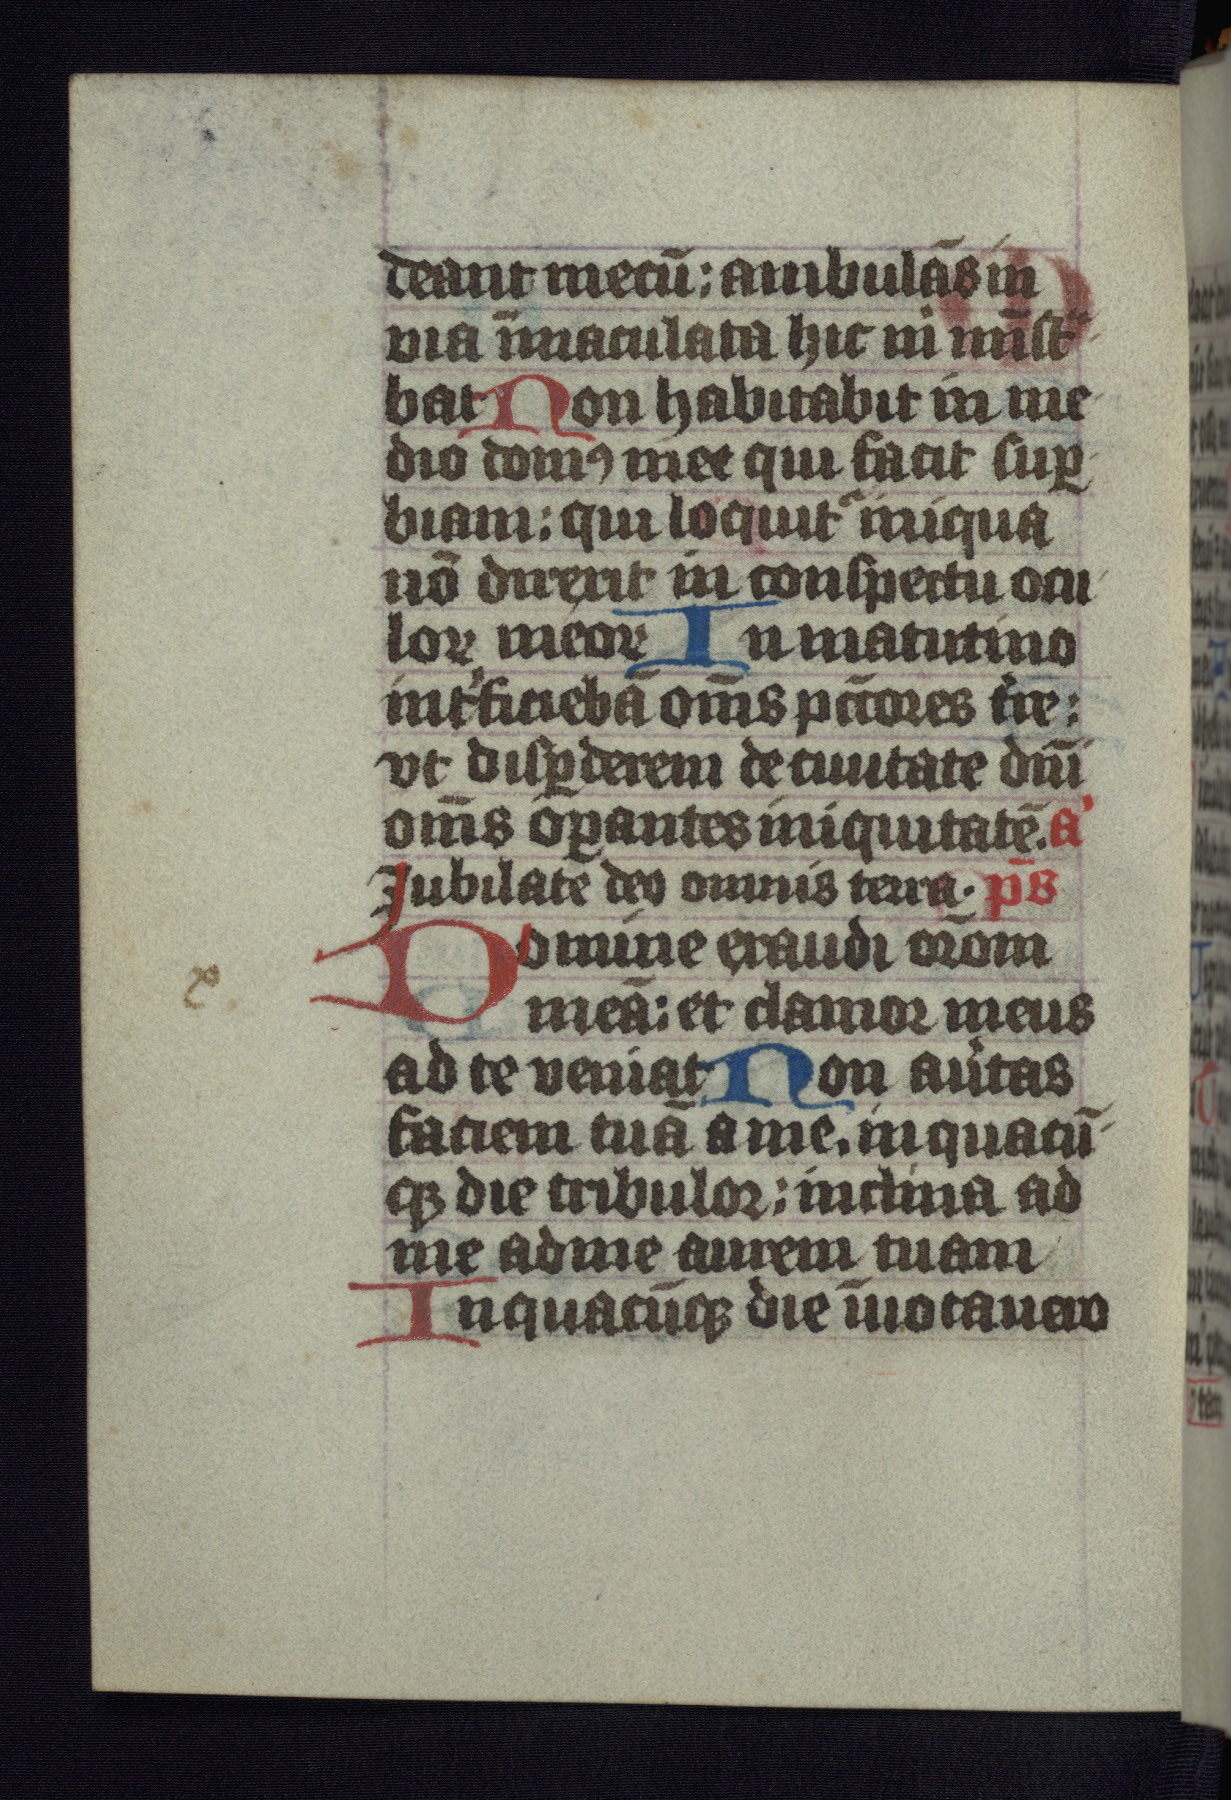 deant mecū: ambulās in
via īmaculata hic m̍ mīst͛-
bat Non habitabit in me-
dio domꝰ mee qui facit suꝑ-
biam: qui loquit᷑ iniqua
nō direxit in conspectu ocu-
loꝝ meoꝝ In matutino
int͛ficiebā om̄s pctōres t͛re:
vt disꝑderem de ciuitate dn̄i
om̄s oꝑantes iniquitatē. a̕
Jubilate deo omnis terra. ps̄
Domine exaudi or̄om
meā: et clamor meus
ad te veniat Non au͛tas
faciem tuā a me. in quacū-
qꝫ die tribulor: inclina ad
me ad me aurem tuam
In quacūqꝫ die īuocauero